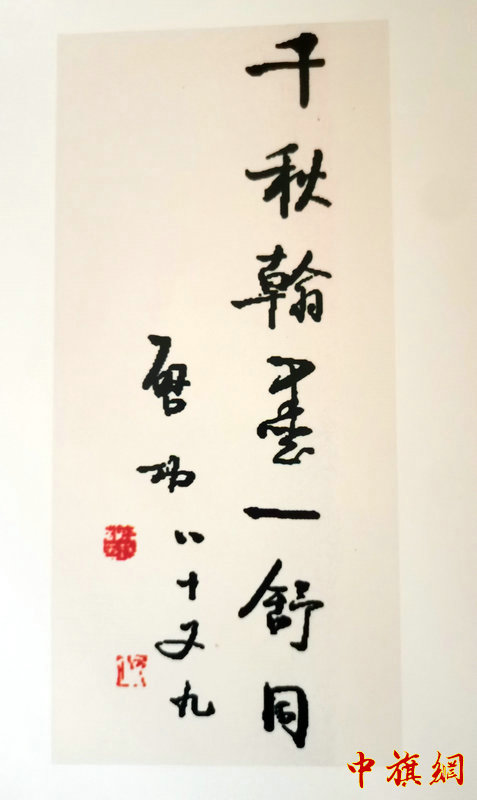 千秋翰墨一舒同
启功八十又九
中旗網